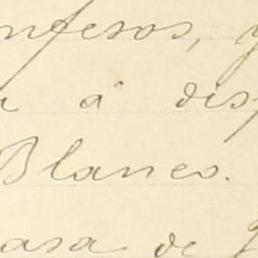 nfesos, y
a á disp
Blanco.
asa de